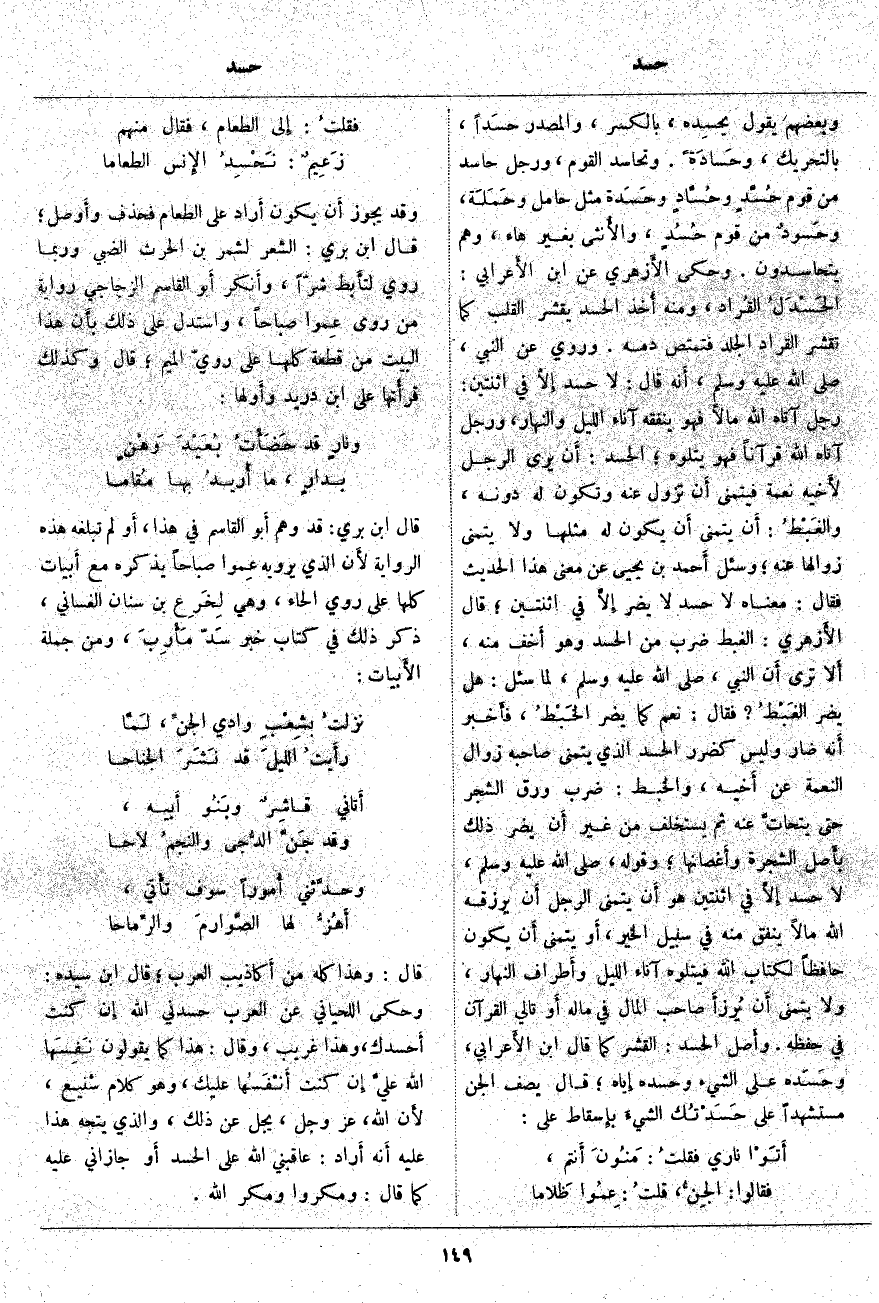 حسد
حسد
وبعضهم يقول يحسِده ، بالكسر ، والمصدر حسَداً ،
بالتحريك ، وحَسادَةً . وتحاسد القوم ، ورجل حاسد
من قوم حُسَّدٍ وحُسَّادٍ وحَسَدة مثل حامل وحَمَلَة ،
وحَسودٌ من قوم حُسُدٍ ، والأُنثى بغير هاء ، وهم
يتحاسدون . وحكى الأَزهري عن ابن الأَعرابي :
الحَسْدَلُ القُراد ، ومنه أُخذ الحسد يقشر القلب كما
تقشر القراد الجلد فتمتص دمه . وروي عن النبي ،
صلى الله عليه وسلم ، أنه قال : لا حسد إلاَّ في اثنتين :
رجل آتاه الله مالاً فهو ينفقه آناء الليل والنهار ، ورجل
آتاه الله قرآناً فهو يتلوه ؛ الحسد : أن يرى الرجل
لأخيه نعمة فيتمنى أن تزول عنه وتكون له دونه ،
والغَبْطُ : أن يتمنى أن يكون له مثلها ولا يتمنى
زوالها عنه ؛ وسئل أحمد بن يحيى عن معنى هذا الحديث
فقال : معناه لا حسد لا يضر إلاَّ في اثنتين ؛ قال
الأَزهري : الغبط ضرب من الحسد وهو أخف منه ،
ألا ترى أن النبي ، صلى الله عليه وسلم ، لما سئل : هل
يضر الغَبْطُ ؟ فقال : نعم كما يضر الخَبْطُ ، فأخبر
أنه ضار وليس كضرر الحسد الذي يتمنى صاحبه زوال
النعمة عن أخيه ، والخبط : ضرب ورق الشجر
حتى يتحاتَّ عنه ثم يستخلف من غير أن يضر ذلك
بأصل الشجرة وأغصانها ؛ وقوله ، صلى الله عليه وسلم ،
لا حسد إلاَّ في اثنتين هو أن يتمنى الرجل أن يرزقه
الله مالاً ينفق منه في سبيل الخير ، أو يتمنى أن يكون
حافظاً لكتاب الله فيتلوه آناء الليل وأطراف النهار ،
ولا يتمنى أن يُرزأ صاحب المال في ماله أو تالي القرآن
في حفظه . وأصل الحسد : القشر كما قال ابن الأَعرابي ،
وحَسَده على الشيء وحسده إياه ؛ قال يصف الجن
مستشهداً على حَسَدْتُك الشيءَ بإسقاط على :
أتَوْا ناري فقلتُ : مَنُونَ أنتم ،
فقالوا : الجِنُّ ، قلتُ : عِمُوا ظَلاما
فقلتُ : إلى الطعام ، فقال منهم
زَعِيمٌ : نَحْسِدُ الإنس الطعاما
وقد يجوز أن يكون أراد على الطعام فحذف وأوصل ؛
قال ابن بري : الشعر لشمر بن الحرث الضبي وربما
روي لتأبط شرّاً ، وأنكر أبو القاسم الزجاجي رواية
من روى عِموا صباحاً ، واستدل على ذلك بأن هذا
البيت من قطعة كلها على رويّ الميم ؛ قال وكذلك
قرأتها على ابن دريد وأولها :
ونارٍ قد حَضَأْتُ بُعَيْدَ وَهْنٍ
بدارٍ ، ما أُريدُ بها مُقاما
قال ابن بري : قد وهم أبو القاسم في هذا ، أو لم تبلغه هذه
الرواية لأن الذي يرويه عِموا صباحاً يذكره مع أبيات
كلها على روي الحاء ، وهي لِخَرِع بن سنان الغساني ،
ذكر ذلك في كتاب خبر سَدّ مَأْرِبَ ، ومن جملة
الأَبيات :
نزلتُ بشِعْبِ وادي الجنِّ ، لَمَّا
رأيتُ الليلَ قد نَشَرَ الجناحا
أتاني قاشِرٌ وبَنُو أبيه ،
وقد جَنَّ الدُّجى والنجمُ لاحا
وحدَّثني أُموراً سوف تأتي ،
أهُزُّ لها الصَّوارمَ والرِّماحا
قال : وهذا كله من أكاذيب العرب ؛ قال ابن سيده :
وحكى اللحياني عن العرب حسدني الله إن كنت
أحسدك ، وهذا غريب ، وقال : هذا كما يقولون نَفِسَها
الله عليَّ إن كنت أنْفَسُها عليك ، وهو كلام شنيع ،
لأن الله ، عز وجل ، يجل عن ذلك ، والذي يتجه هذا
عليه أنه أراد : عاقبني الله على الحسد أو جازاني عليه
كما قال : ومكروا ومكر الله .
١٤٩